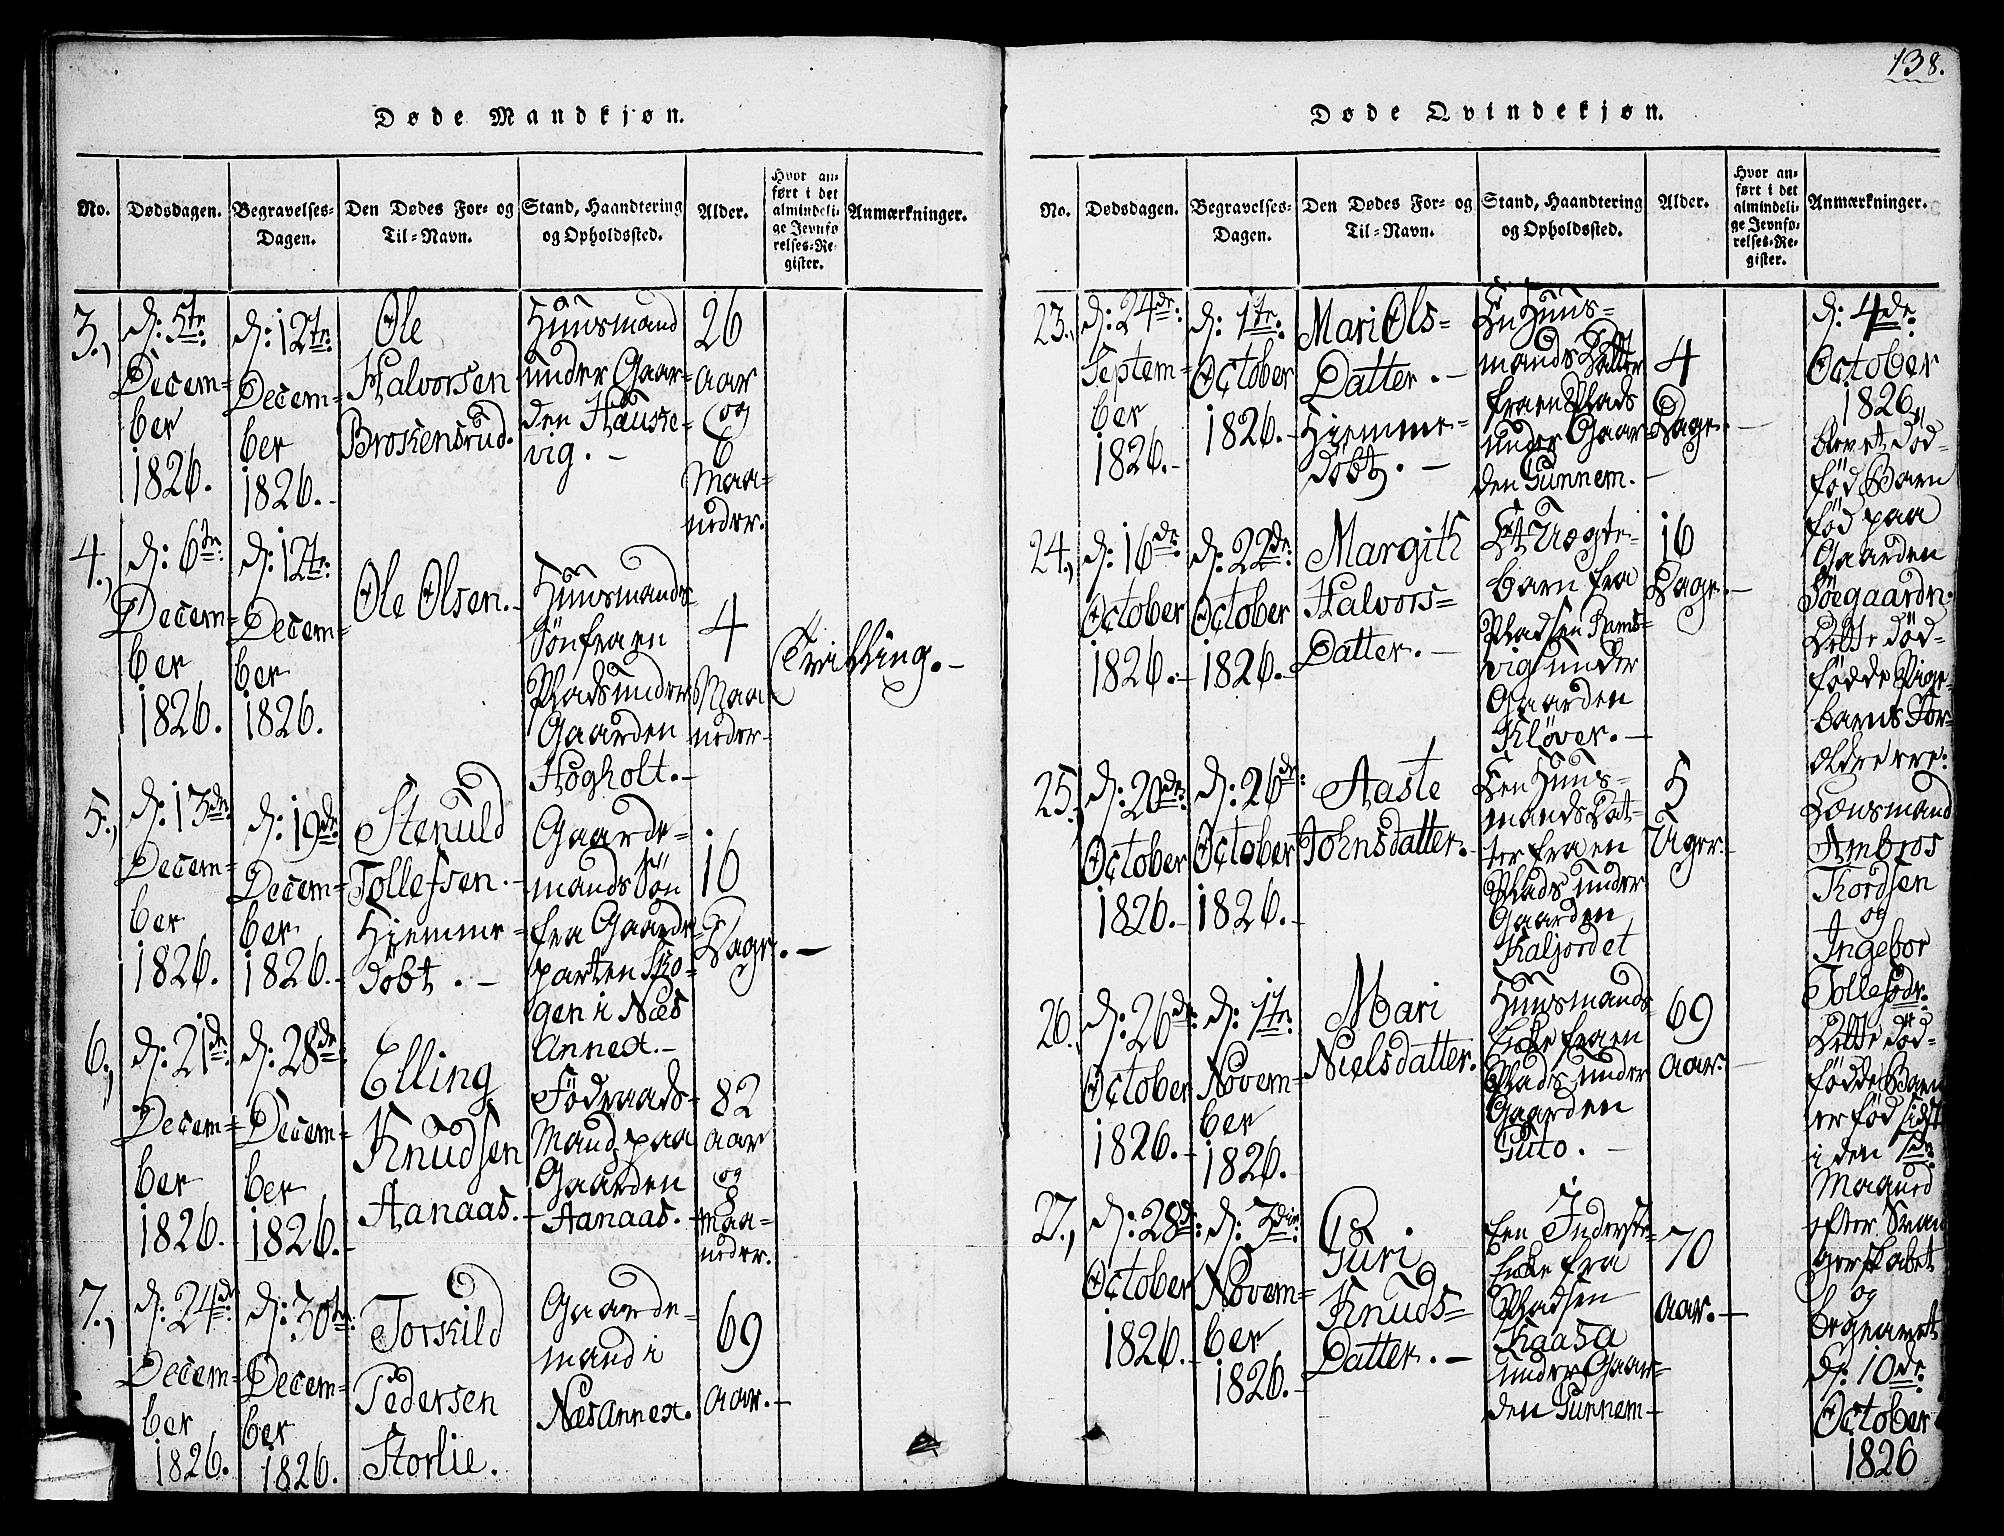 138.
Døde Mandkjøn.
No. Dødsdagen. Begravelses-Dagen. Den Dødes For- og Til-Navn. Stand, Haandtering og Opholdssted. Alder. Hvor anført i det almindelige Jevnførelses-Register. Anmærkninger.
3.,
d: 5te
Decem=
ber
1826.
d: 12te
Decem=
ber
1826.
Ole
Halvorsen
Brokensrud.
Huusmand
under Gaar=
den Hauke=
vig.
26
Aar
og
6
Maa=
neder.
4.,
d: 6te
Decem=
ber
1826.
d: 12te
Decem=
ber
1826.
Ole Olsen.
Huusmands
Sön fra en
Plads under
Gaarden
Hogholt.
4
Maa
neder
Trilling.
5.,
d: 13de
Decem=
ber
1826.
d: 19de
Decem=
ber
1826.
Stenuld
Tollefsen.
Hiemme=
dobt.
Gaarde=
mands Sön
fra Gaarde
parten Sko=
gen i Næs
Annext.
16
Dage.
6.,
d: 21de
Decem=
ber
1826.
d: 28de
Decem=
ber
1826.
Elling
Knudsen
Aanaas.
Föderaads=
Mand paa
Gaarden
Aanaas.
82
Aar
og
8
Maa=
neder.
7.,
d: 24de
Decem=
ber
1826.
d: 30te
Decem=
ber
1826.
Torskild
Pedersen
Storlie.
Gaarde=
mand i
Næs Annext.
69
Aar.
Døde Qvindekjøn.
No. Dødsdagen. Begravelses-Dagen. Den Dødes For- og Til-Navn. Stand, Haandtering og Opholdssted. Alder. Hvor anført i det almindelige Jevnførelses-Register. Anmærkninger.
23.,
d: 24de
Septem=
ber
1826.
d: 1te
October
1826.
Mari Ols=
Datter.
Hjemme=
döbt.
En Huus=
mands Datter
fra en Plads
under Gaar
den Gunnem.
4
Dage.
24.,
d: 16de
October
1826.
d: 22de
October
1826.
Margith
Halvors=
Datter.
Et Uægte
barn fra
Pladsen Rams=
vig under
Gaarden
Klöver.
16
Dage.
25.,
d: 20de
October
1826.
d: 26de
October
1826.
Aaste
Johnsdatter.
En Huus=
mands Dat=
ter fra en
Plads under
Gaarden
Kaljordet
5
Uger.
26.
d: 26de
October
1826.
d: 1te
Novem=
ber
1826.
Mari
Nielsdatter.
Huusmands
Enke fra en
Plads under
Gaarden
Guto.
69
Aar.
27.,
d: 28de
October
1826.
d: 3die
Novem=
ber
1826.
Guri
Knuds=
Datter.
En Inderste=
Enke fra
Pladsen
Kaasa
under Gaar=
den Gunnem
70
Aar.
d: 4de
October
1826,
blev et död=
fød Barn
fød paa
Gaarden
Söegaarden.
Dette död=
födde Pige=
barns For=
ældre ere:
Lensmand
Ambros
Tordsen
og
Ingebor
Tollefsdr.
Dette död=
födde Barn
er fød sidst
i den 7de
Maaned
efter Svan
gerskabet
og
begravet
d: 10de
October
1826